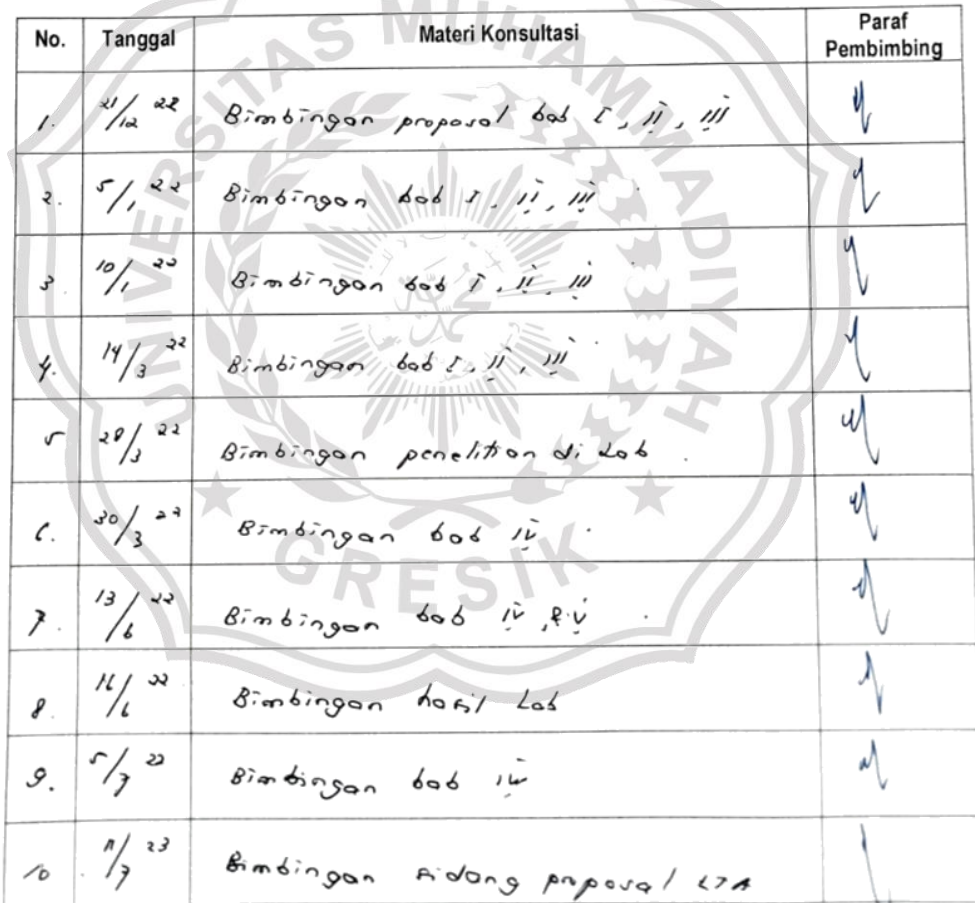 UNIVERSITAS MUHAMMADIYAH
GRESIK
No. Tanggal Materi Konsultasi Paraf Pembimbing
1. 21/12 22 Bimbingan proposal bab I, II, III
2. 5/1 22 Bimbingan bab I, II, III
3. 10/1 22 Bimbingan bab I, II, III
4. 14/3 22 Bimbingan bab I, II, III
5 28/3 22 Bimbingan penelitian di Lab.
6. 30/3 22 Bimbingan bab IV
7. 13/6 22 Bimbingan bab IV & V
8. 16/6 22 Bimbingan hasil Lab
9. 5/7 22 Bimbingan bab IV
10 /7 23 Bimbingan sidang proposal LTA